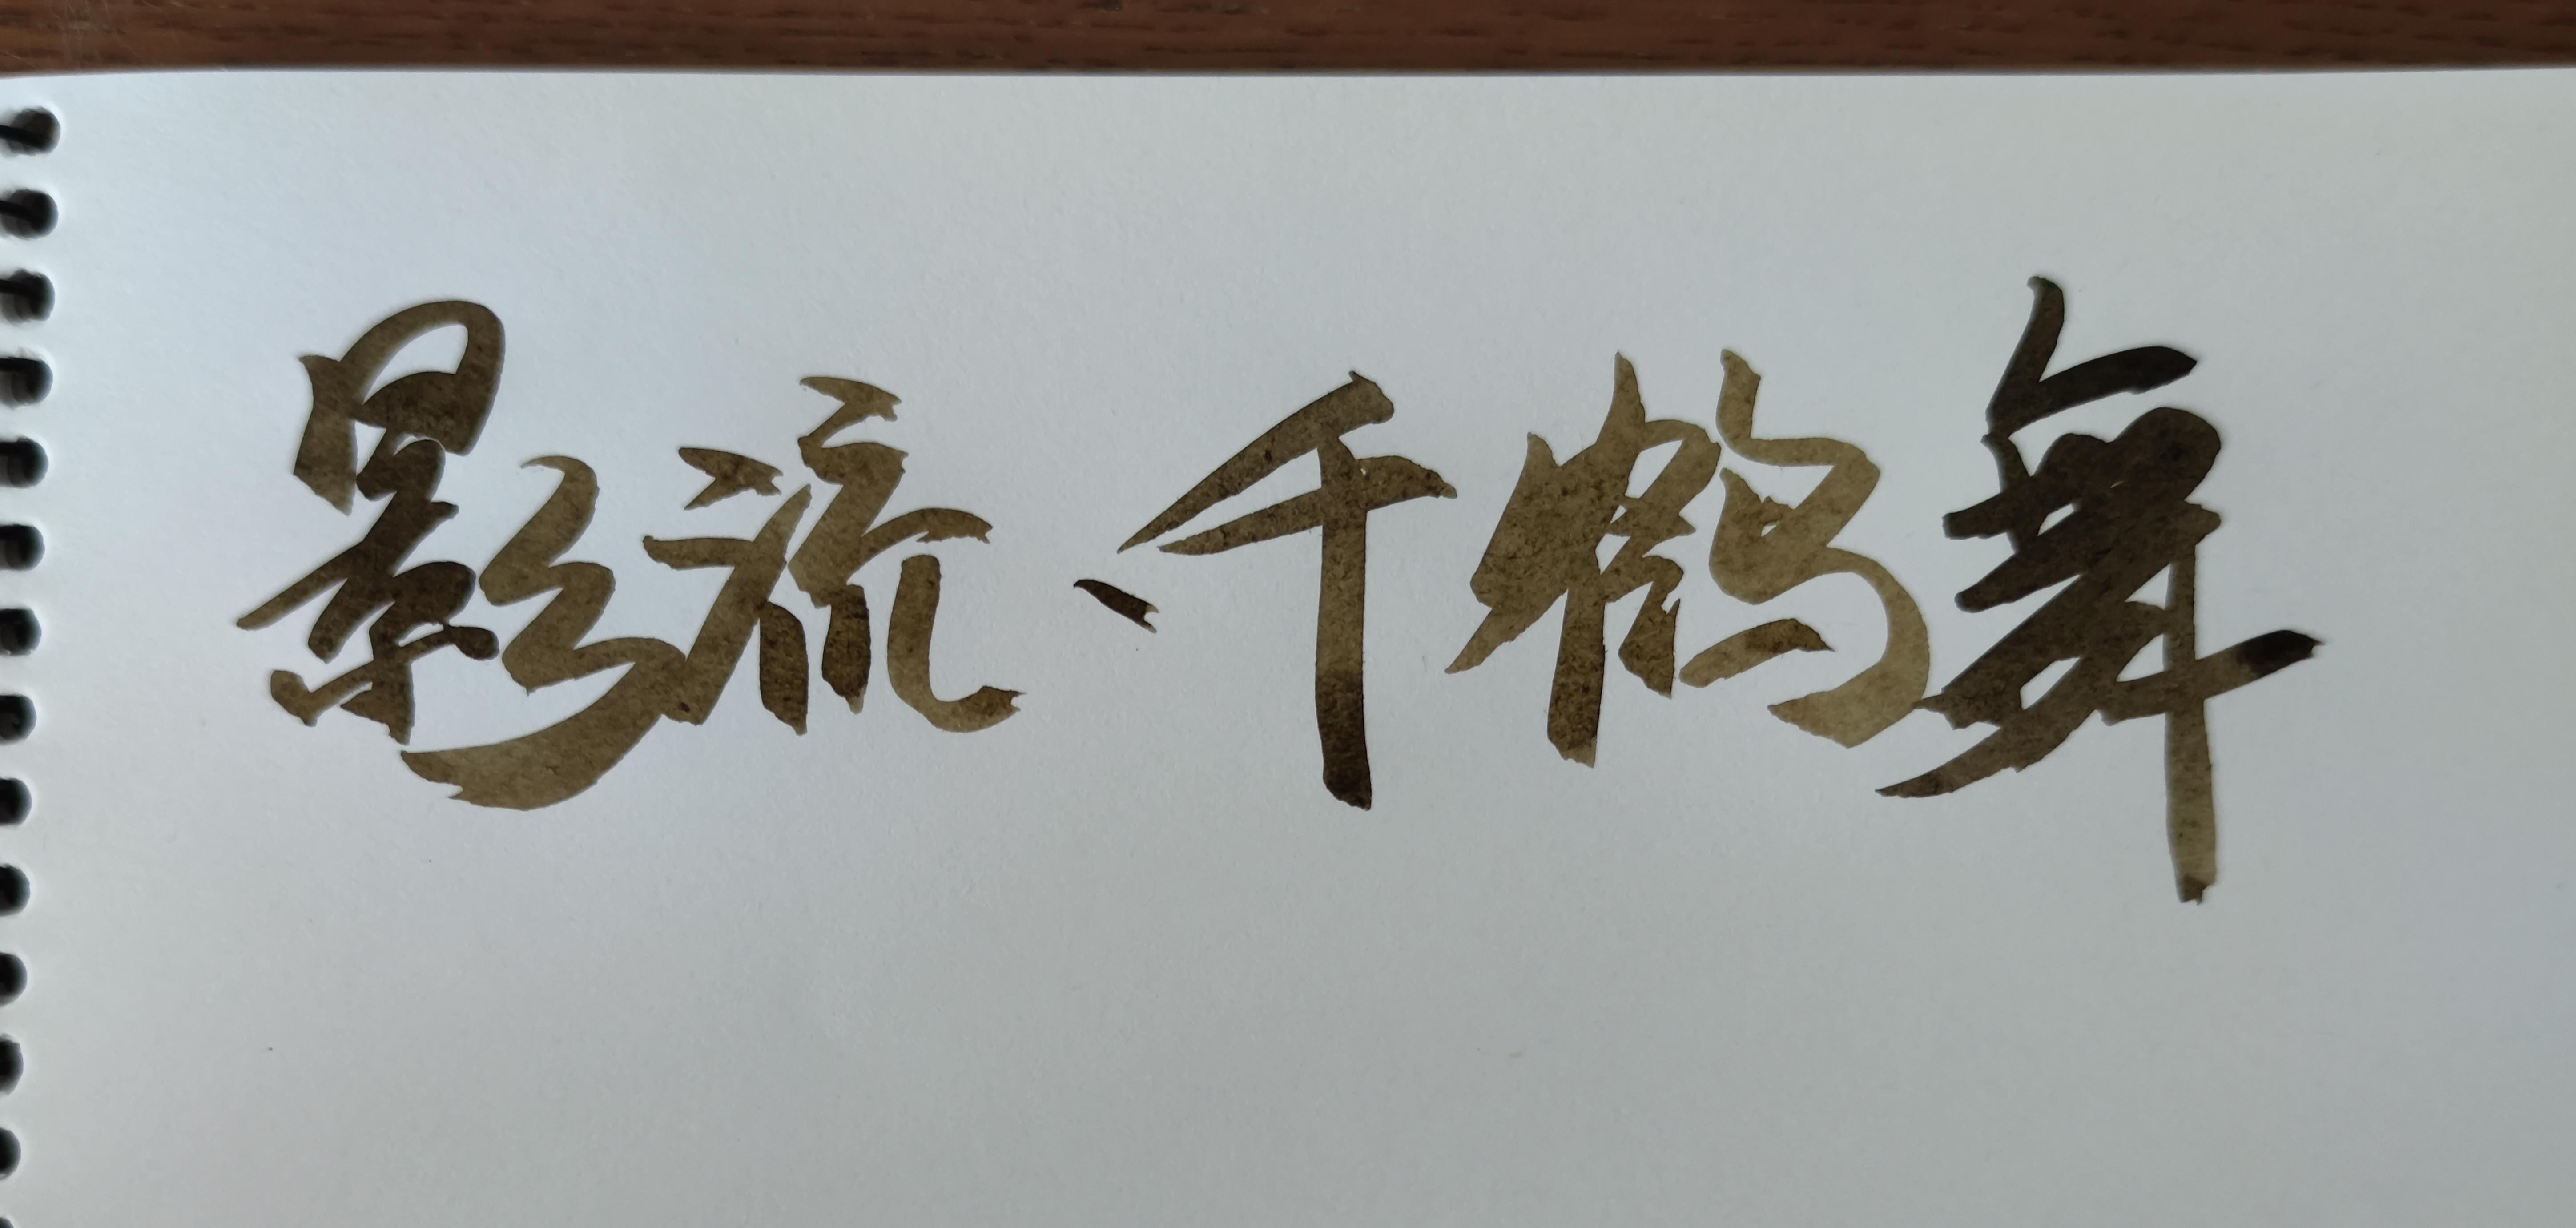 影流、千鹤舞